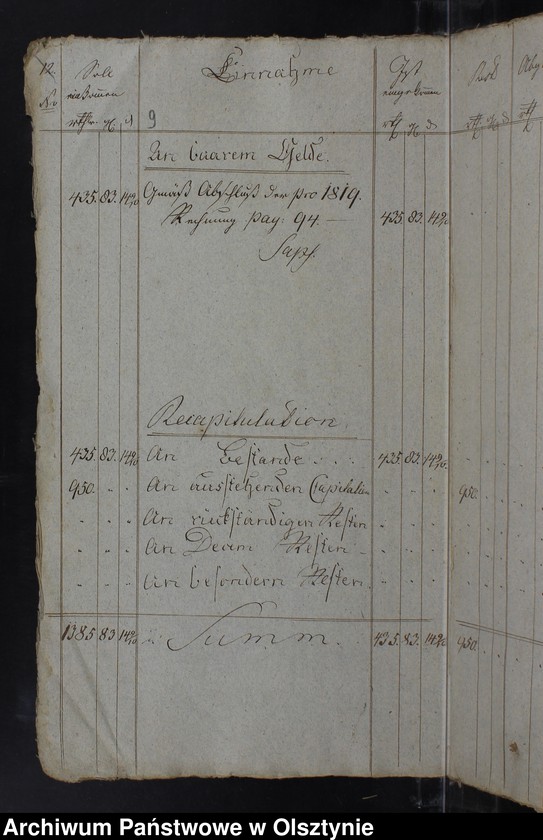 12. Soll Einnahme Ist Rest
No einkommen eingekommen
rthl. gr. d 9 rth gr d rth gr d rth
An baarem Gelde.
435. 83. 14 2/10 Gemäß Abschluß der pro 1819.
Rechnung pag: 94. — 435. 83. 14 2/10
Recapitulation.
435. 83. 14 2/10 An Bestande . . . 435. 83. 14 2/10.
950. " " An ausstehenden Capitalien " " " 950.
" " " An rückständigen Resten " " "
" " " An Resten " " "
" " " An besondern Resten. " " "
1385. 83. 14 2/10 Summ. 435. 83. 14 2/10 950.
Archiwum Państwowe w Olsztynie